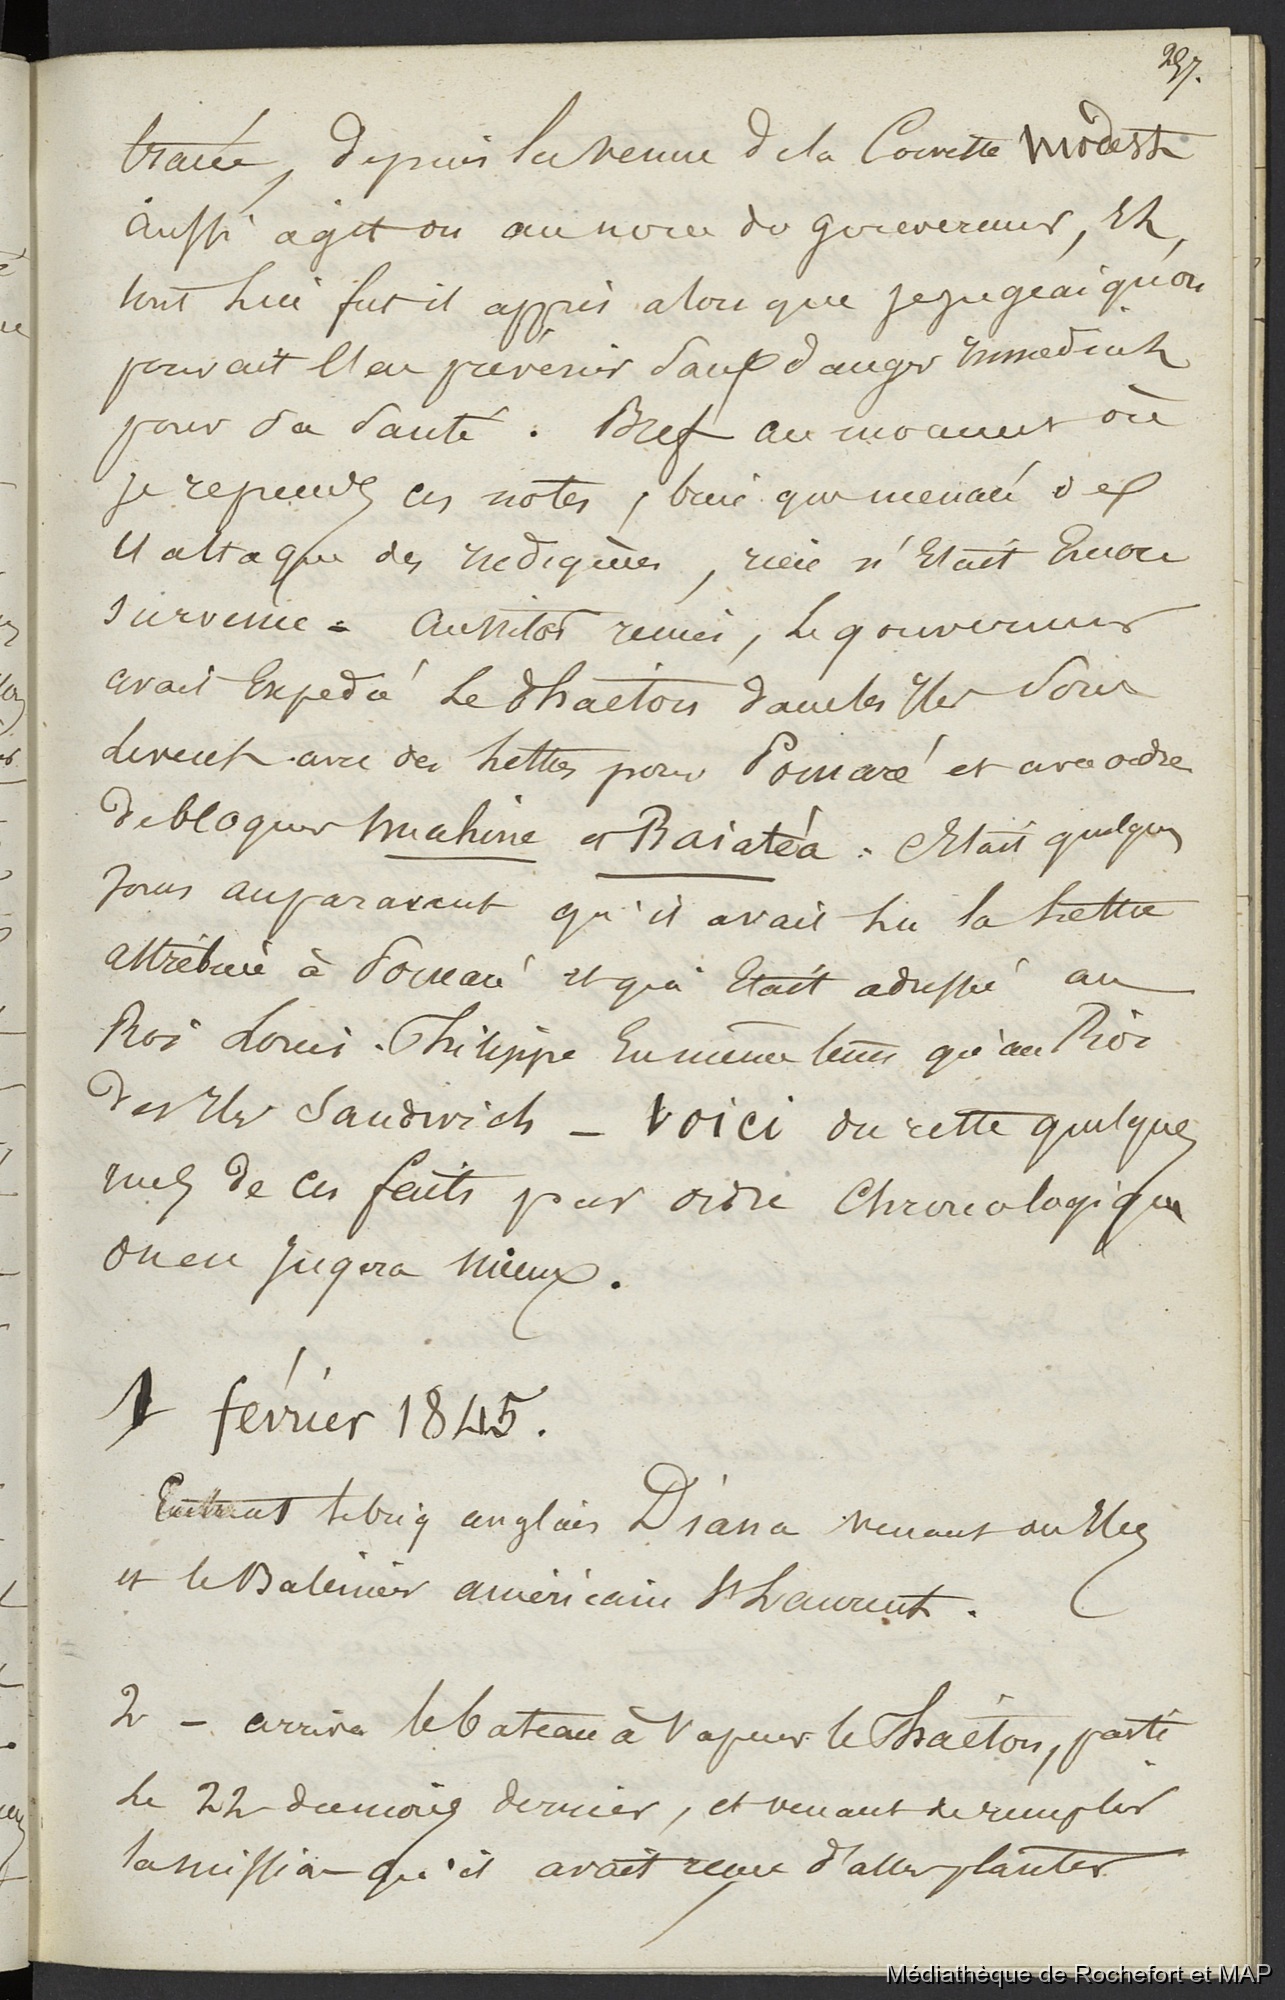 297.
tracée, depuis la venue de la Corvette Modeste
aussi agit on au nom du gouverneur, et,
tout lui fut il appris alors que je jugeai qu'on
pouvait l'en prévenir sans danger immediat
pour sa santé. Bref au moment où
je reprends ces notes, bruie que menacé d'ex
et attaque des indigènes, rien n'était encore
survenu = aussitôt remis, le gouverneur
avait expedié le Phaéton dans les Iles sous
le vent avec des lettres pour Pomaré et avec ordre
de bloquer Huahine et Raiatéa. c'était quelques
jours auparavant qu'il avait lu la lettre
attribuée à Pomaré et qui était adressée au
Roi Louis-Philippe en même tems qu'au Roi
des Iles Sandwich - Voici du reste quelques
uns de ces faits par ordre chronologique
on en jugera mieux.
1 février 1845.
Entrent le brig anglais Diana venant des Iles
et le Baleinier américain St Laurent.
2 - arrive le bateau à vapeur le Phaéton, parti
le 22 du mois dernier, et venant de remplir
la mission qu'il avait reçue d'aller planter
Médiathèque de Rochefort et MAP